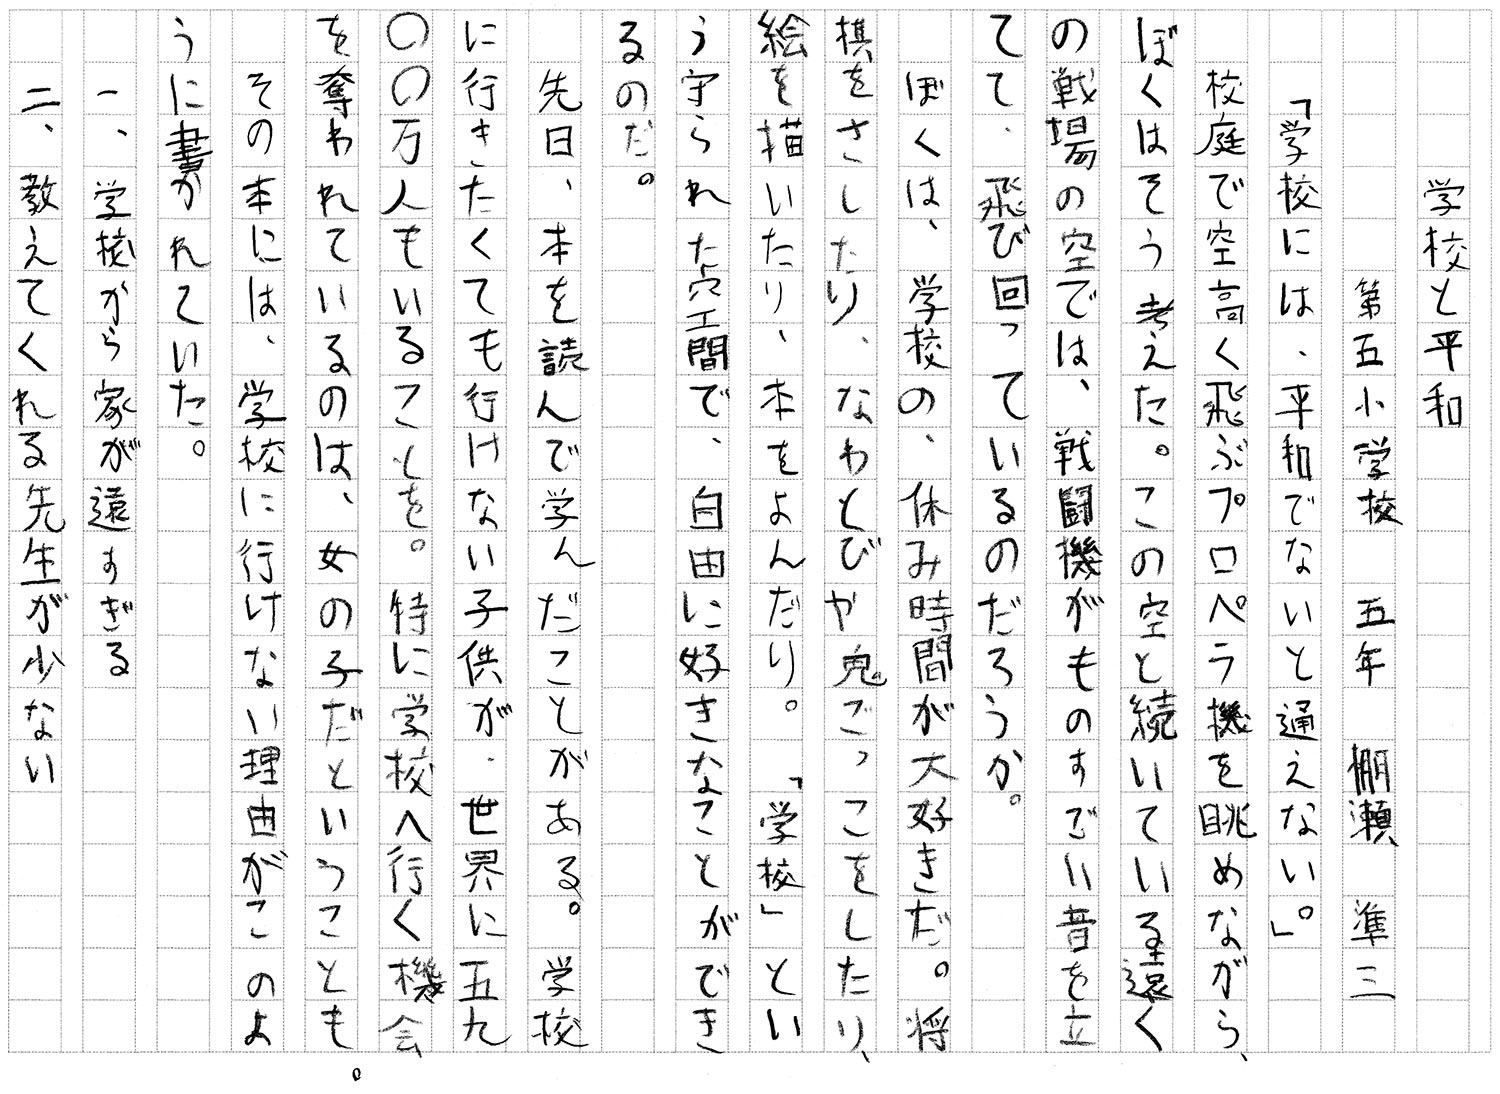 学校と平和
第五小学校 五年 棚瀬 準三
「学校には、平和でないと通えない。」
校庭で空高く飛ぶプロペラ機を眺めながら、
ぼくはそう考えた。この空と続いている遠く
の戦場の空では、戦闘機がものすごい音を立
てて、飛び回っているのだろうか。
ぼくは、学校の、休み時間が大好きだ。将
棋をさしたり、なわとびや鬼ごっこをしたり、
絵を描いたり、本をよんだり。「学校」とい
う守られた空間で、自由に好きなことができ
るのだ。
先日、本を読んで学んだことがある。学校
に行きたくても行けない子供が、世界に五九
〇〇万人もいることを。特に学校へ行く機会
を奪われているのは、女の子だということも。
その本には、学校に行けない理由がこのよ
うに書かれていた。
一、学校から家が遠すぎる
二、教えてくれる先生が少ない